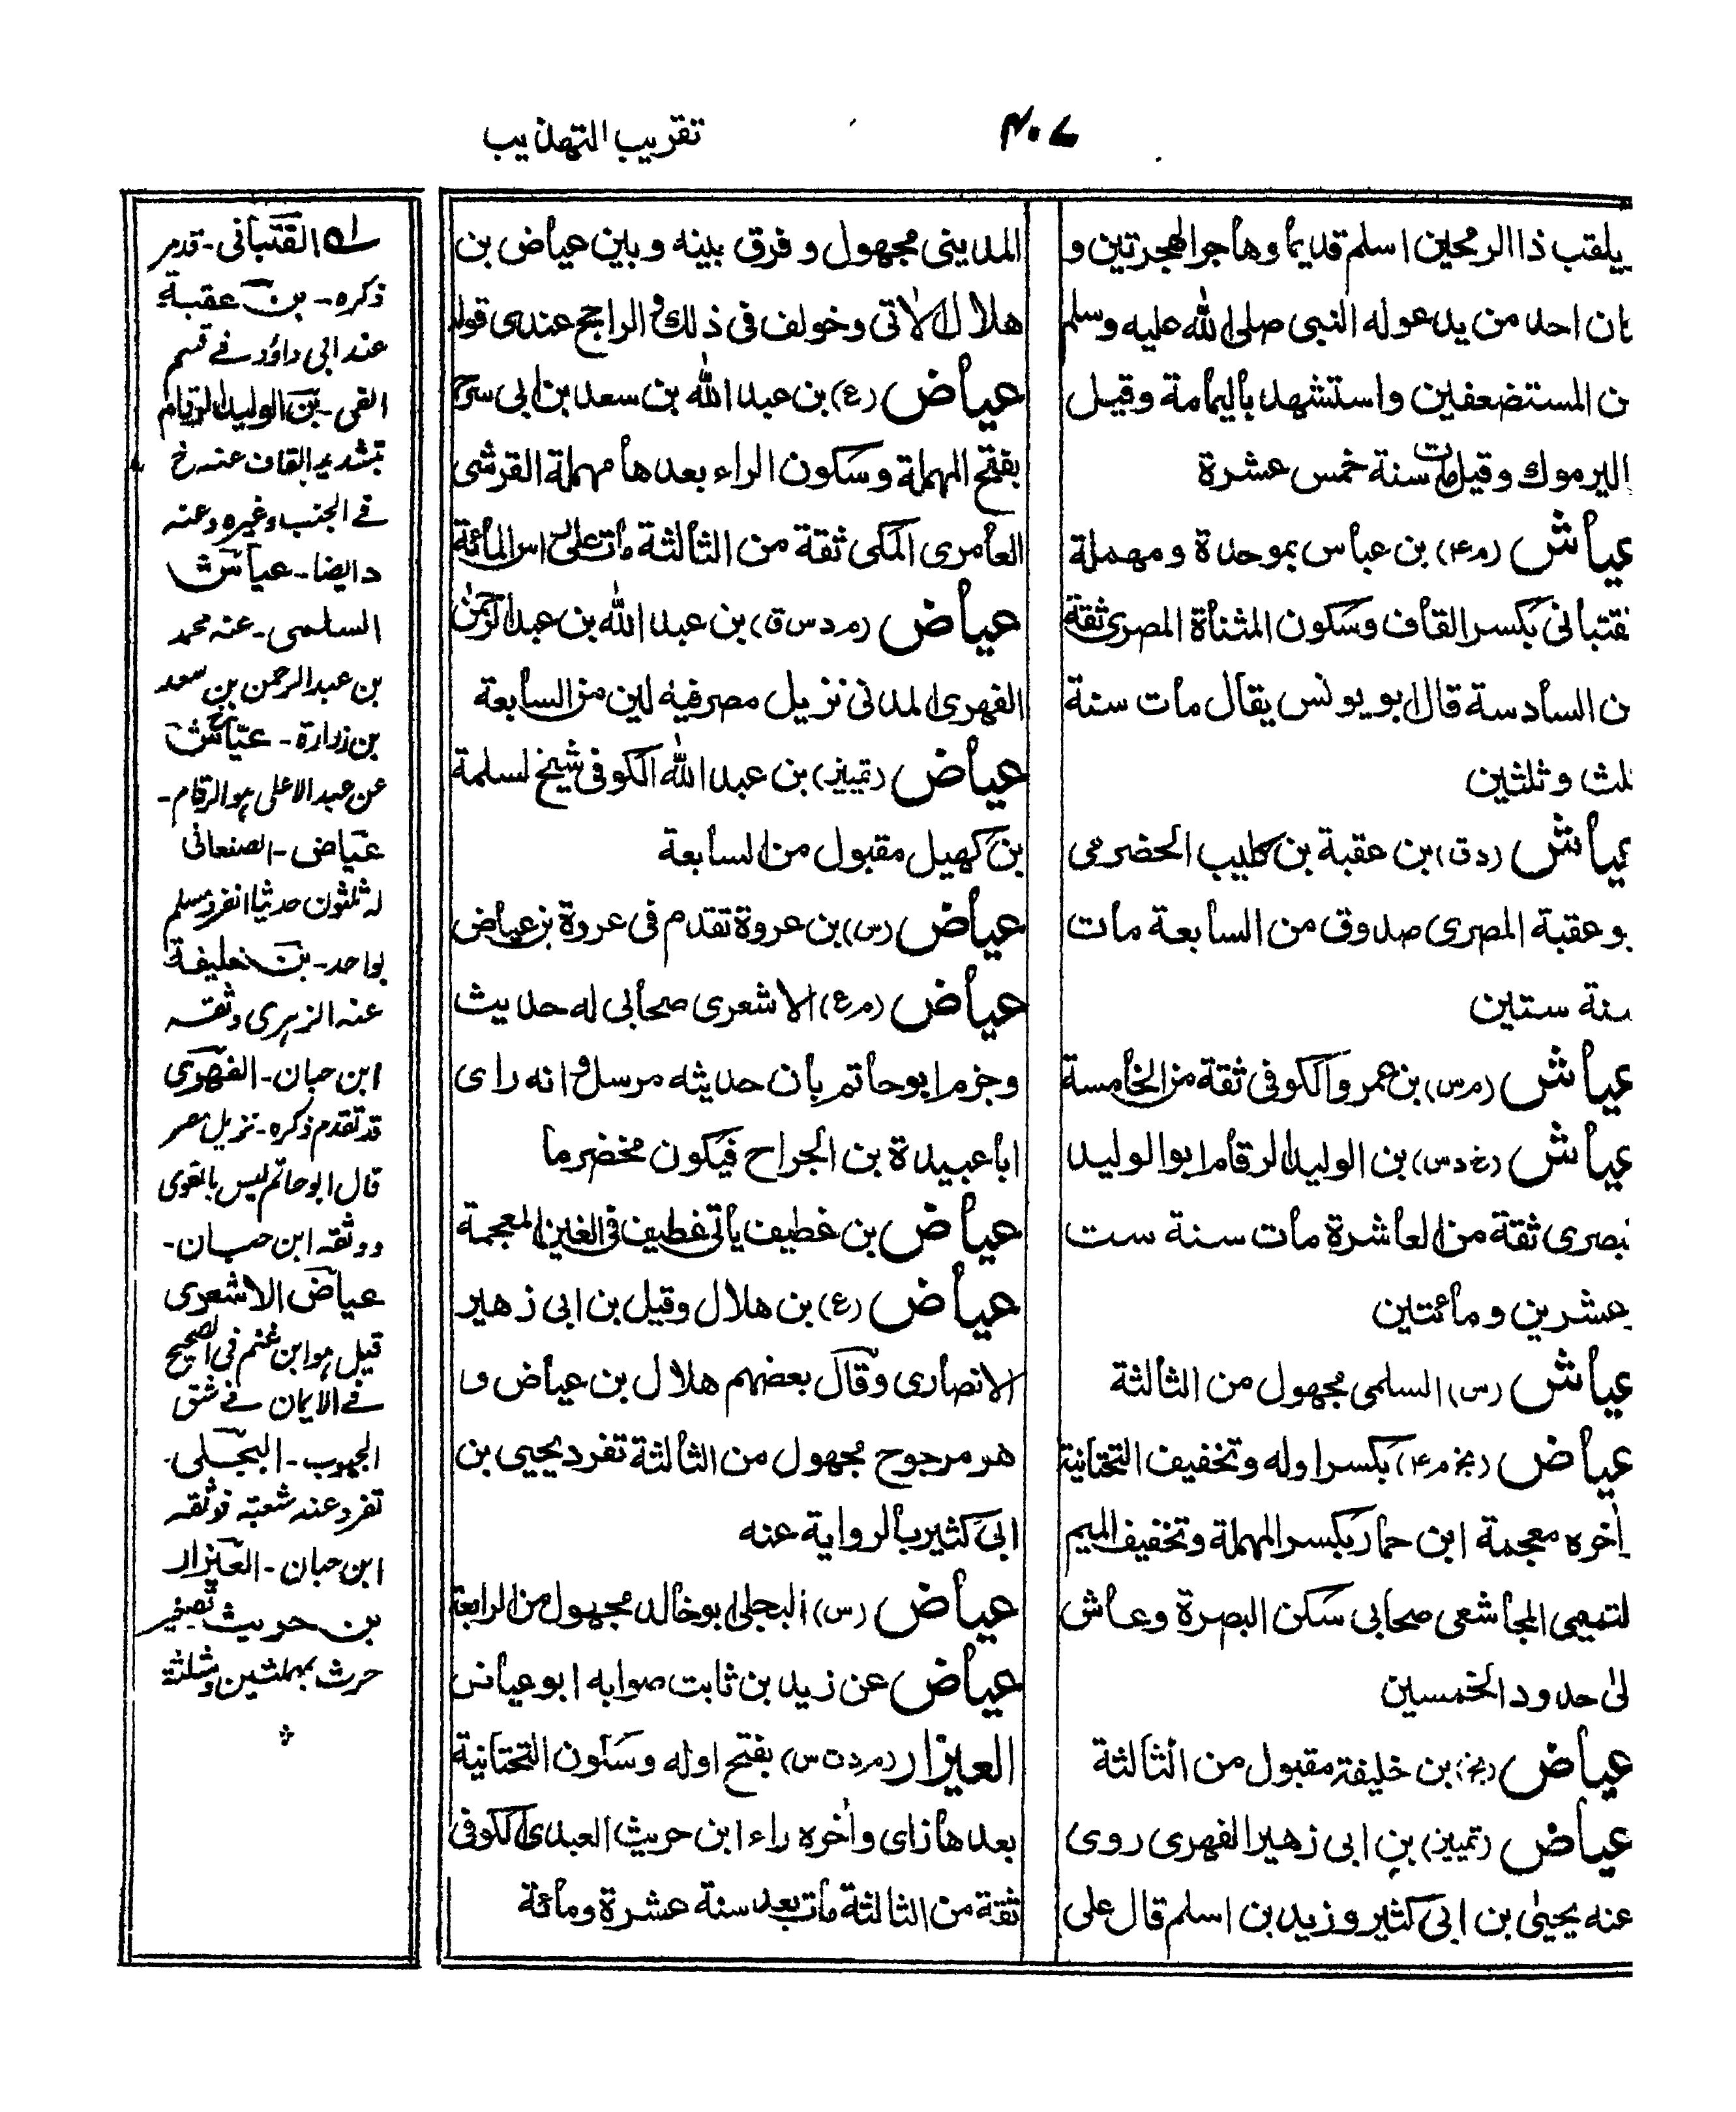 ۴۰۷
تقريب التهذيب
يلقب ذا الرمحين اسلم قديما وهاجر الهجرتين و
ان احد من يدعو له النبي صلى الله عليه وسلم
ن المستضعفين واستشهد باليمامة وقيل
اليرموك وقيل مات سنة خمس عشرة
عياش (م۴) بن عباس بموحدة ومهملة
لقتباني بكسر القاف وسكون المثناة المصري ثقة
ن السادسة قال ابو يونس يقال مات سنة
لث وثلثين
عياش (د ق) بن عقبة بن كليب الحضرمي
بو عقبة المصري صدوق من السابعة مات
سنة ستين
عياش (م س) بن عمرو الكوفي ثقة من الخامسة
عياش (خ د س) بن الوليد الرقام ابو الوليد
لبصري ثقة من العاشرة مات سنة ست
عشرين ومائتين
عياش (س) السلمي مجهول من الثالثة
عياض (بخ م۴) بكسر اوله وتخفيف التحتانية
اخره معجمة ابن حمار بكسر المهملة وتخفيف الميم
لتميمي المجاشعي صحابي سكن البصرة وعاش
لى حدود الخمسين
عياض (بخ) بن خليفة مقبول من الثالثة
عياض (تمييز) بن ابي زهير الفهري روى
عنه يحيى بن ابي كثير وزيد بن اسلم قال على
المديني مجهول وفرق بينه وبين عياض بن
هلال الاتي وخولف في ذلك والراجح عندي قوله
عياض (ع) بن عبد الله بن سعد بن ابي سرح
بفتح المهملة وسكون الراء بعدها مهملة القرشي
العامري المكي ثقة من الثالثة مات على راس المائة
عياض (م د س ق) بن عبد الله بن عبد الرحمن
الفهري المدني نزيل مصر فيه لين من السابعة
عياض (تمييز) بن عبد الله الكوفي شيخ لسلمة
بن كهيل مقبول من السابعة
عياض (س) بن عروة تقدم في عروة بن عياض
عياض (م ع) الاشعري صحابي له حديث
وجزم ابو حاتم بان حديثه مرسل وانه راى
ابا عبيدة بن الجراح فيكون مخضرما
عياض بن غطيف ياتي غطيف في الغين المعجمة
عياض (ع) بن هلال وقيل بن ابي زهير
الانصاري وقال بعضهم هلال بن عياض و
هو مرجوح مجهول من الثالثة تفرد يحيى بن
ابي كثير بالرواية عنه
عياض (س) البجلي ابو خالد مجهول من الرابعة
عياض عن زيد بن ثابت صوابه ابو عياض
العيزار (م د ت س) بفتح اوله وسكون التحتانية
بعدها زاى واخره راء ابن حريث العبدي الكوفي
ثقة من الثالثة مات بعد سنة عشرة ومائة
له القتباني - قدم
ذكره - بن عقبة
عند ابي داؤد في قسم
الفى - بن الوليد الرقام
بتشديد القاف عنه خ
في الجنب وغيره وعنه
د ايضا - عياش
السلمي - عنه محمد
بن عبد الرحمن بن سعد
بن زرارة - عياش
عن عبد الاعلى هو الرقام -
عياض - الصنعاني
له ثلثون حديثا انفرد مسلم
بواحد - بن خليفة
عنه الزهري وثقه
ابن حبان - الفهري
قد تقدم ذكره - نزيل مصر
قال ابو حاتم ليس بالقوى
ووثقه ابن حبان -
عياض الاشعري
قيل هو ابن غنم في الصحيح
في الايمان في شق
الجيوب - البجلي -
تفرد عنه شعبة فوثقه
ابن حبان - العيزار
بن حريث تصغير
حرث بمهملتين ومثلثة